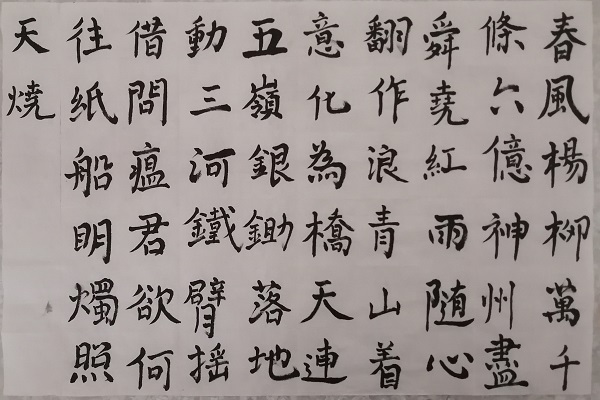 春風楊柳萬千
條六億神州盡
舜堯紅雨随心
翻作浪青山着
意化為橋天連
五嶺銀鋤落地
動三河鐵臂揺
借問瘟君欲何
往紙船明燭照
天燒